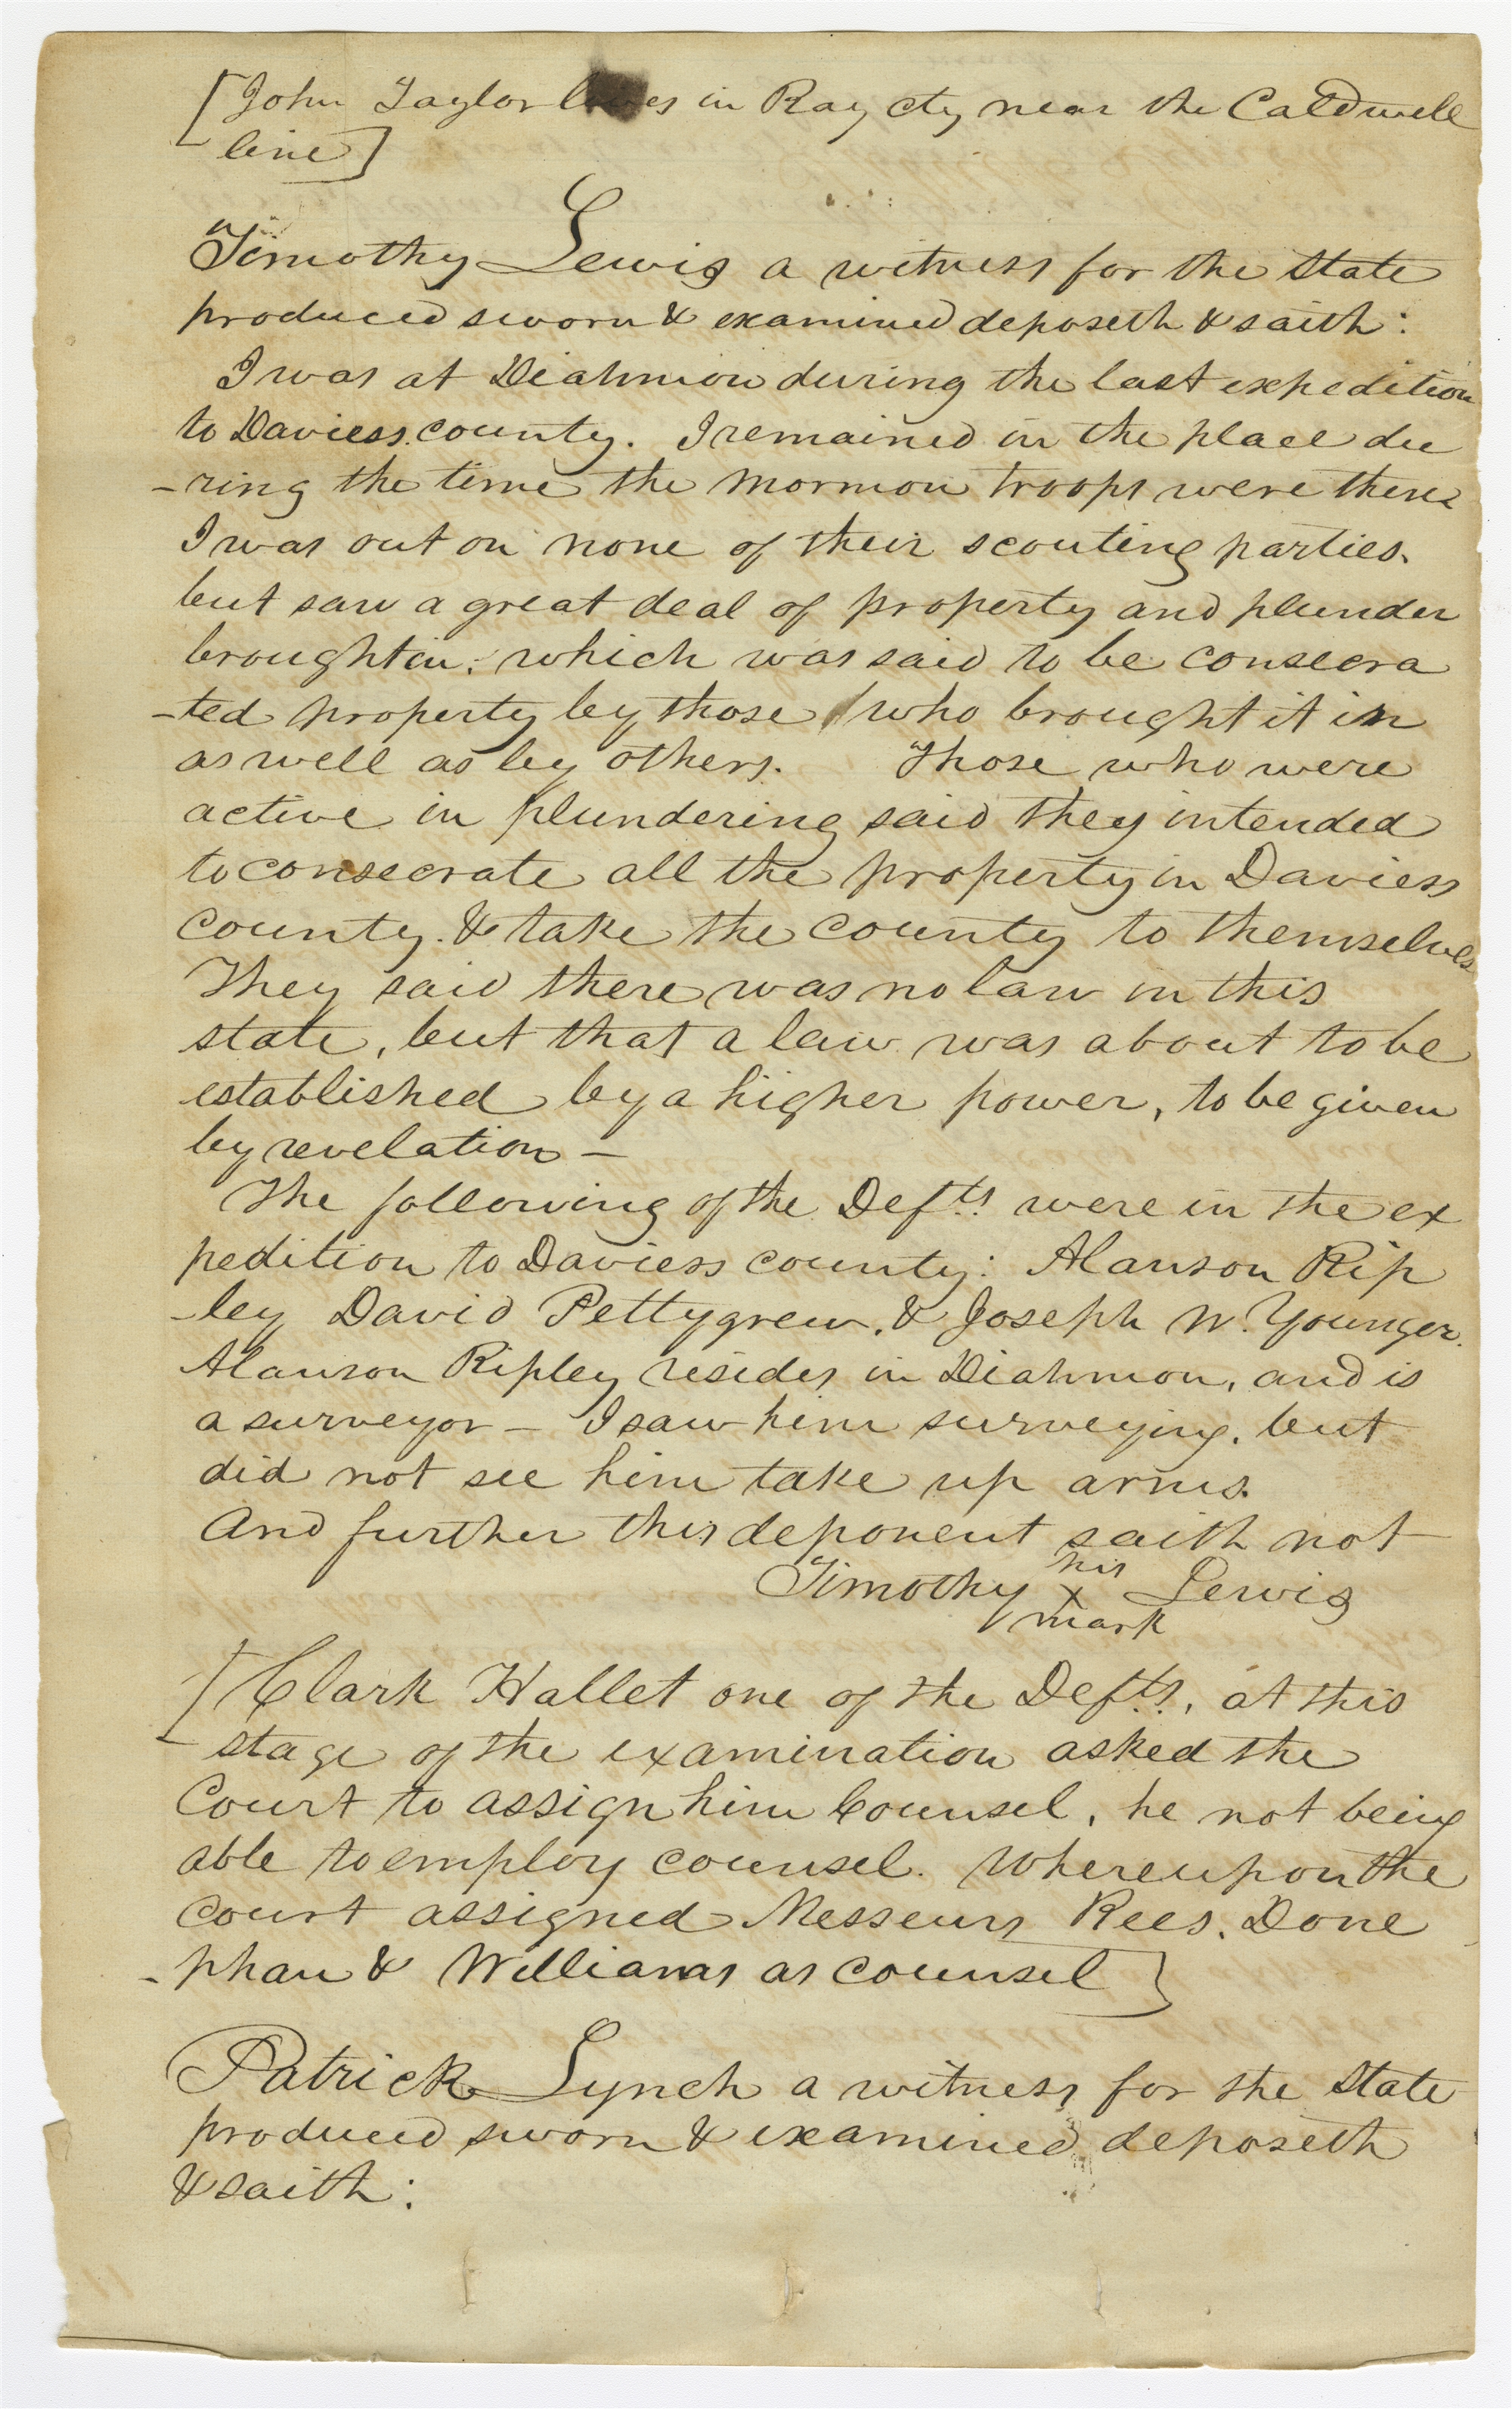 [John Taylor lives in Ray cty near the Caldwell
line]
Timothy Lewis a witness for the State
produced sworn & examined deposeth & saith:
I was at Diahmon during the last expedition
to Daviess county. I remained in the place du
-ring the time the Mormon troops were there
I was out on none of their scouting parties.
but saw a great deal of property and plunder
brought in: which was said to be consecra
-ted property by those who brought it in
as well as by others. Those who were
active in plundering said they intended
to consecrate all the property in Daviess
county. & take the county to themselves
They said there was no law in this
state, but that a law was about to be
established by a higher power, to be given
by revelation –
The following of the Defts. were in the ex
pedition to Daviess county: Alanson Rip
-ley David Pettygrew, & Joseph W. Younger.
Alanson Ripley resides in Diahmon, and is
a surveyor – I saw him surveying, but
did not see him take up arms.
And further this deponent saith not
his
Timothy x Lewis
mark
[Clark Hallet one of the Defts., at this
stage of the examination asked the
Court to assign him Counsel, he not being
able to employ counsel. Whereupon the
court assigned Messeurs Rees, Done
-phan & Williams as counsel]
Patrick Lynch a witness for the State
produced sworn & examined deposeth
& saith: